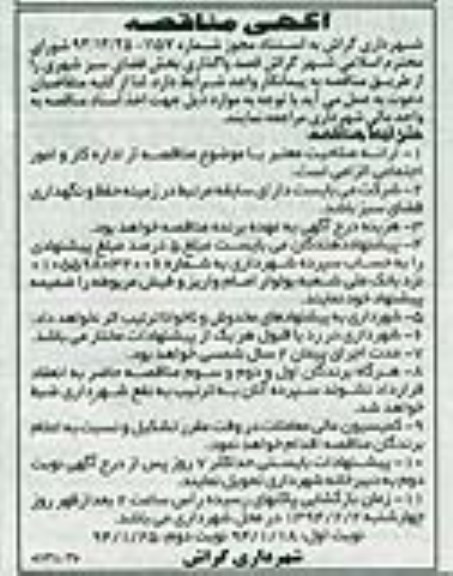 آگهی مناقصه
شهرداری گراش به استناد مجوز شماره ۷۵۷-۹۳/۱۲/۲۵ شورای
محترم اسلامی شهر گراش قصد واگذاری بخش فضای سبز شهری را
از طریق مناقصه به پیمانکار واجد شرایط دارد لذا از کلیه متقاضیان
دعوت به عمل می آید با توجه به موارد ذیل جهت اخذ اسناد مناقصه به
واحد مالی شهرداری مراجعه نمایند.
شرایط مناقصه
۱- ارائه صلاحیت معتبر با موضوع مناقصه از اداره کار و امور
اجتماعی الزامی است.
۲- شرکت می بایست دارای سابقه مرتبط در زمینه حفظ و نگهداری
فضای سبز باشد.
۳- هزینه درج آگهی به عهده برنده مناقصه خواهد بود.
۴- پیشنهاددهندگان می بایست مبلغ ۵ درصد مبلغ پیشنهادی
را به حساب سپرده شهرداری به شماره
نزد بانک ملی شعبه بولوار امام واریز و فیش مربوطه را ضمیمه
پیشنهاد خود نمایند.
۵- شهرداری به پیشنهادهای مخدوش و ناخوانا ترتیب اثر نخواهد داد.
۶- شهرداری در رد یا قبول هر یک از پیشنهادات مختار می باشد.
۷- مدت اجرای پیمان ۲ سال شمسی خواهد بود.
۸- هرگاه برندگان اول و دوم و سوم مناقصه حاضر به انعقاد
قرارداد نشوند سپرده آنان به ترتیب به نفع شهرداری ضبط
خواهد شد.
۹- کمیسیون عالی معاملات در وقت مقرر تشکیل و نسبت به اعلام
برندگان مناقصه اقدام خواهد نمود.
۱۰- پیشنهادات بایستی حداکثر ۷ روز پس از درج آگهی نوبت
دوم به دبیرخانه شهرداری تحویل نمایند.
۱۱- زمان بازگشایی پاکتهای رسیده راس ساعت ۲ بعد از ظهر روز
چهارشنبه ۱۳۹۴/۲/۲ در محل شهرداری می باشد.
نوبت اول: ۹۴/۱/۱۸ نوبت دوم: ۹۴/۱/۲۵
شهرداری گراش